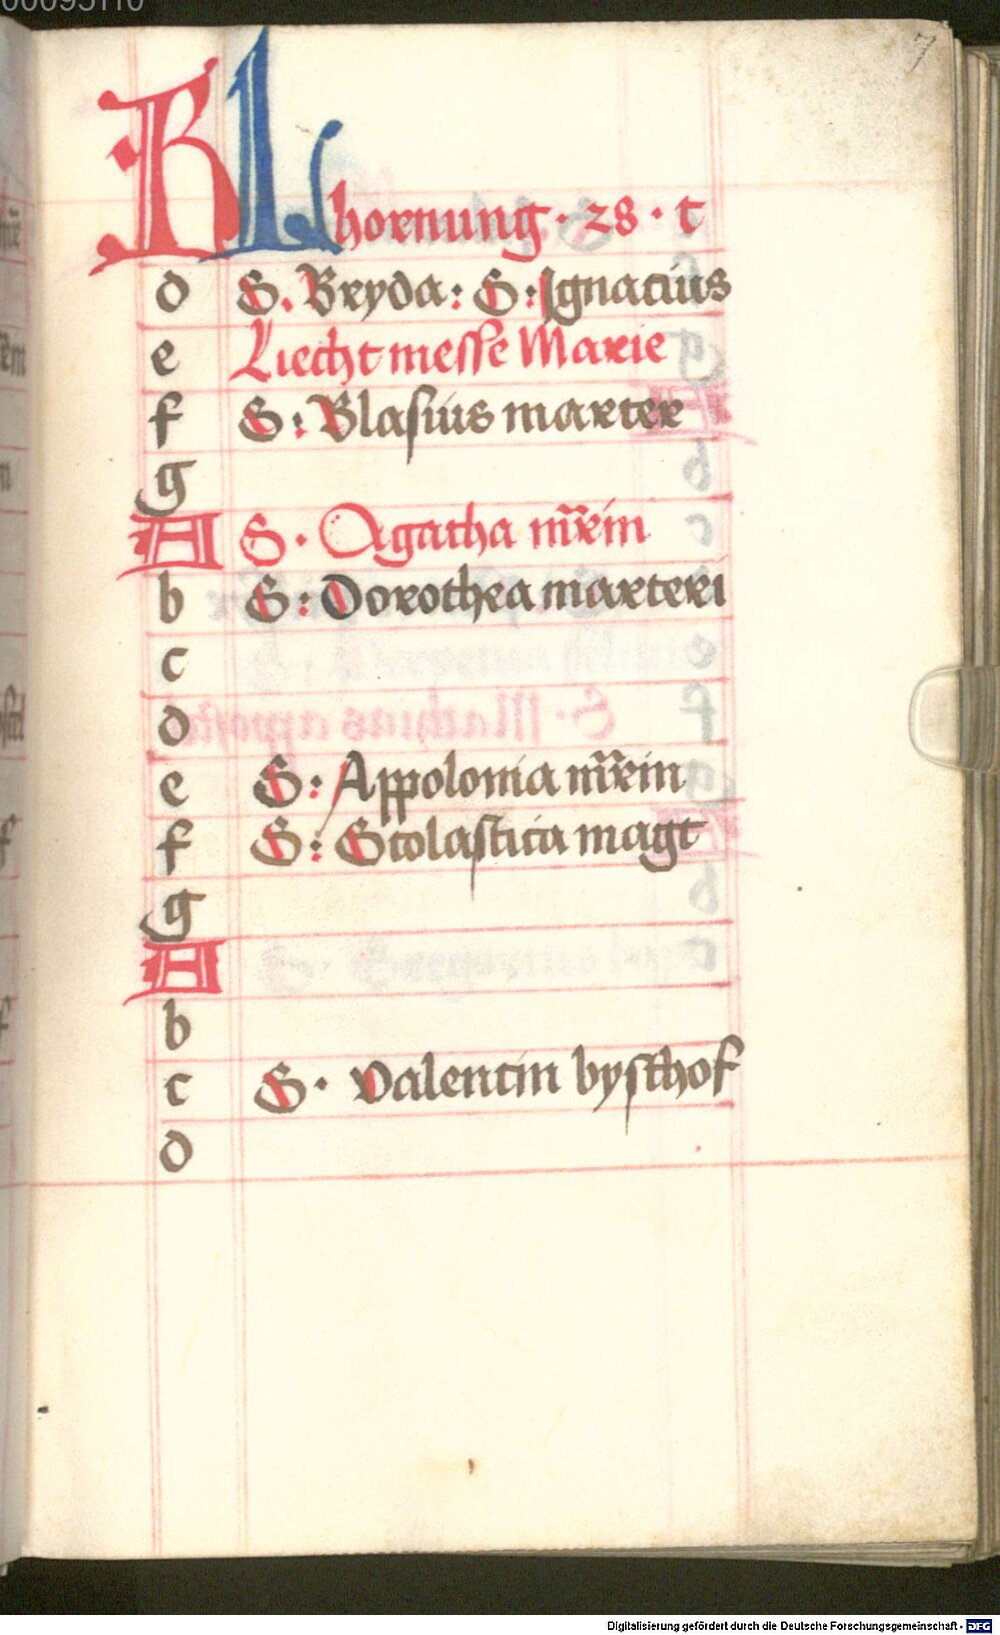 KL hornung · 28 · t
d S. Bryda: S: Ignacius
e Liechtmesse Marie
f S: Blasius marter
g
A S. Agatha mr̄ein
b S: Dorothea marteri
c
d
e S: Appolonia mr̄ein
f S: Scolastica magt
g
A
b
c S. Valentin byschof
d
Digitalisierung gefördert durch die Deutsche Forschungsgemeinschaft - DFG